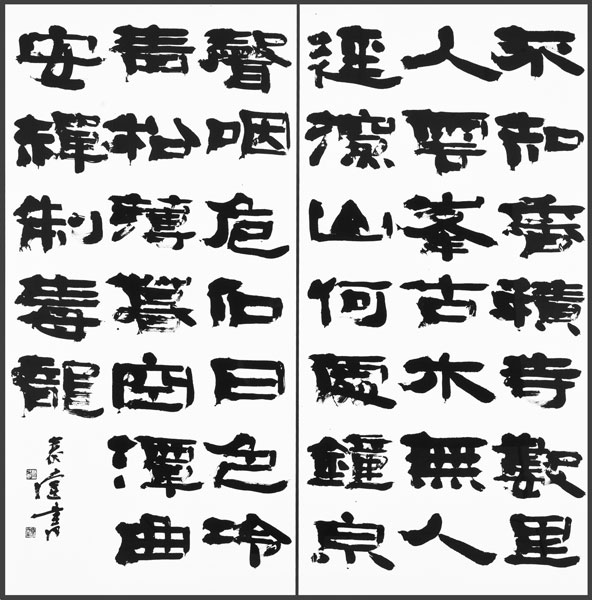 不知香積寺數里
入雲峯古木無人
逕深山何處鐘泉
聲咽危石日色冷
青松薄暮空潭曲
安禪制毒龍
書